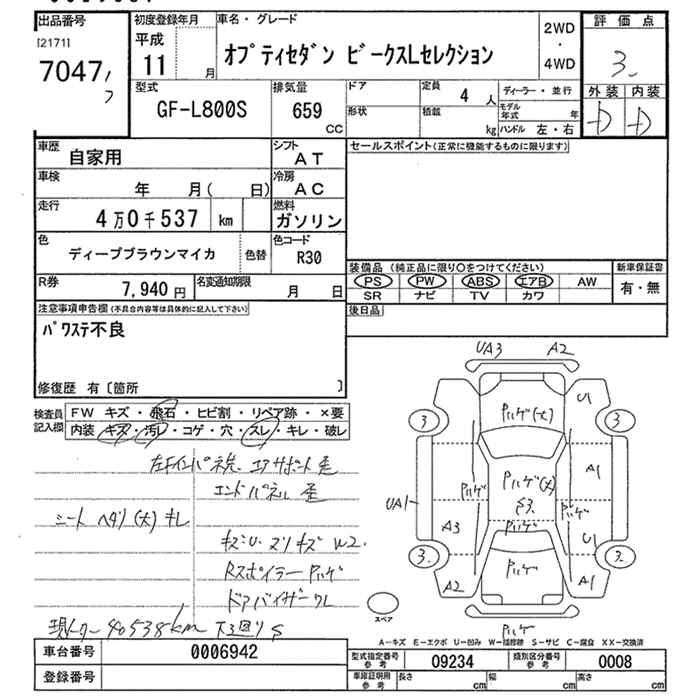 出品番号
[2171]
7047
初度登録年月
平成
11 月
車名・グレード
オプティセダン ビークスLセレクション
2WD
・
4WD
評価点
3
外装 内装
D D
型式
GF-L800S
排気量
659
cc
ドア
形状
定員
4 人
積載
kg
ディーラー・並行
モデル年式 年
ハンドル 左・右
車歴
自家用
シフト
AT
車検
年 月( 日)
冷房
AC
走行
4万0千537 km
燃料
ガソリン
色
ディープブラウンマイカ
色替
色コード
R30
R券
7,940 円
名変通知期限
月 日
セールスポイント(正常に機能するものに限ります)
装備品 (純正品に限り○をつけてください)
PS PW ABS エアB AW
SR ナビ TV カワ
新車保証書
有・無
後日品
注意事項申告欄(不具合内容等は具体的に記入して下さい)
パワステ不良
修復歴 有〔箇所 〕
検査員記入欄
FW キズ・飛石・ヒビ割・リペア跡・×要
内装 キズ・汚レ・コゲ・穴・スレ・キレ・破レ
エンドパネル 歪
シート ヘタリ(大) キレ
キズ・U・スリキズ W2.
Rスポイラー Pハゲ
ドアバイザーワレ
40538km
UA3 A2
Pハゲ(大)
U1
3 3
Pハゲ
Pハゲ(大)
S3.
A1
UA1
Pハゲ
Pハゲ
A3
U1
3. 3.
Pハゲ
A2
A1
Pハゲ
スペア
A-キズ E-エクボ U-凹み W-補修跡 S-サビ C-腐食 XX-交換済
車台番号
0006942
登録番号
型式指定番号
参考
09234
類別区分番号
参考
0008
車庫証明用
参考
長さ cm
幅 cm
高さ cm